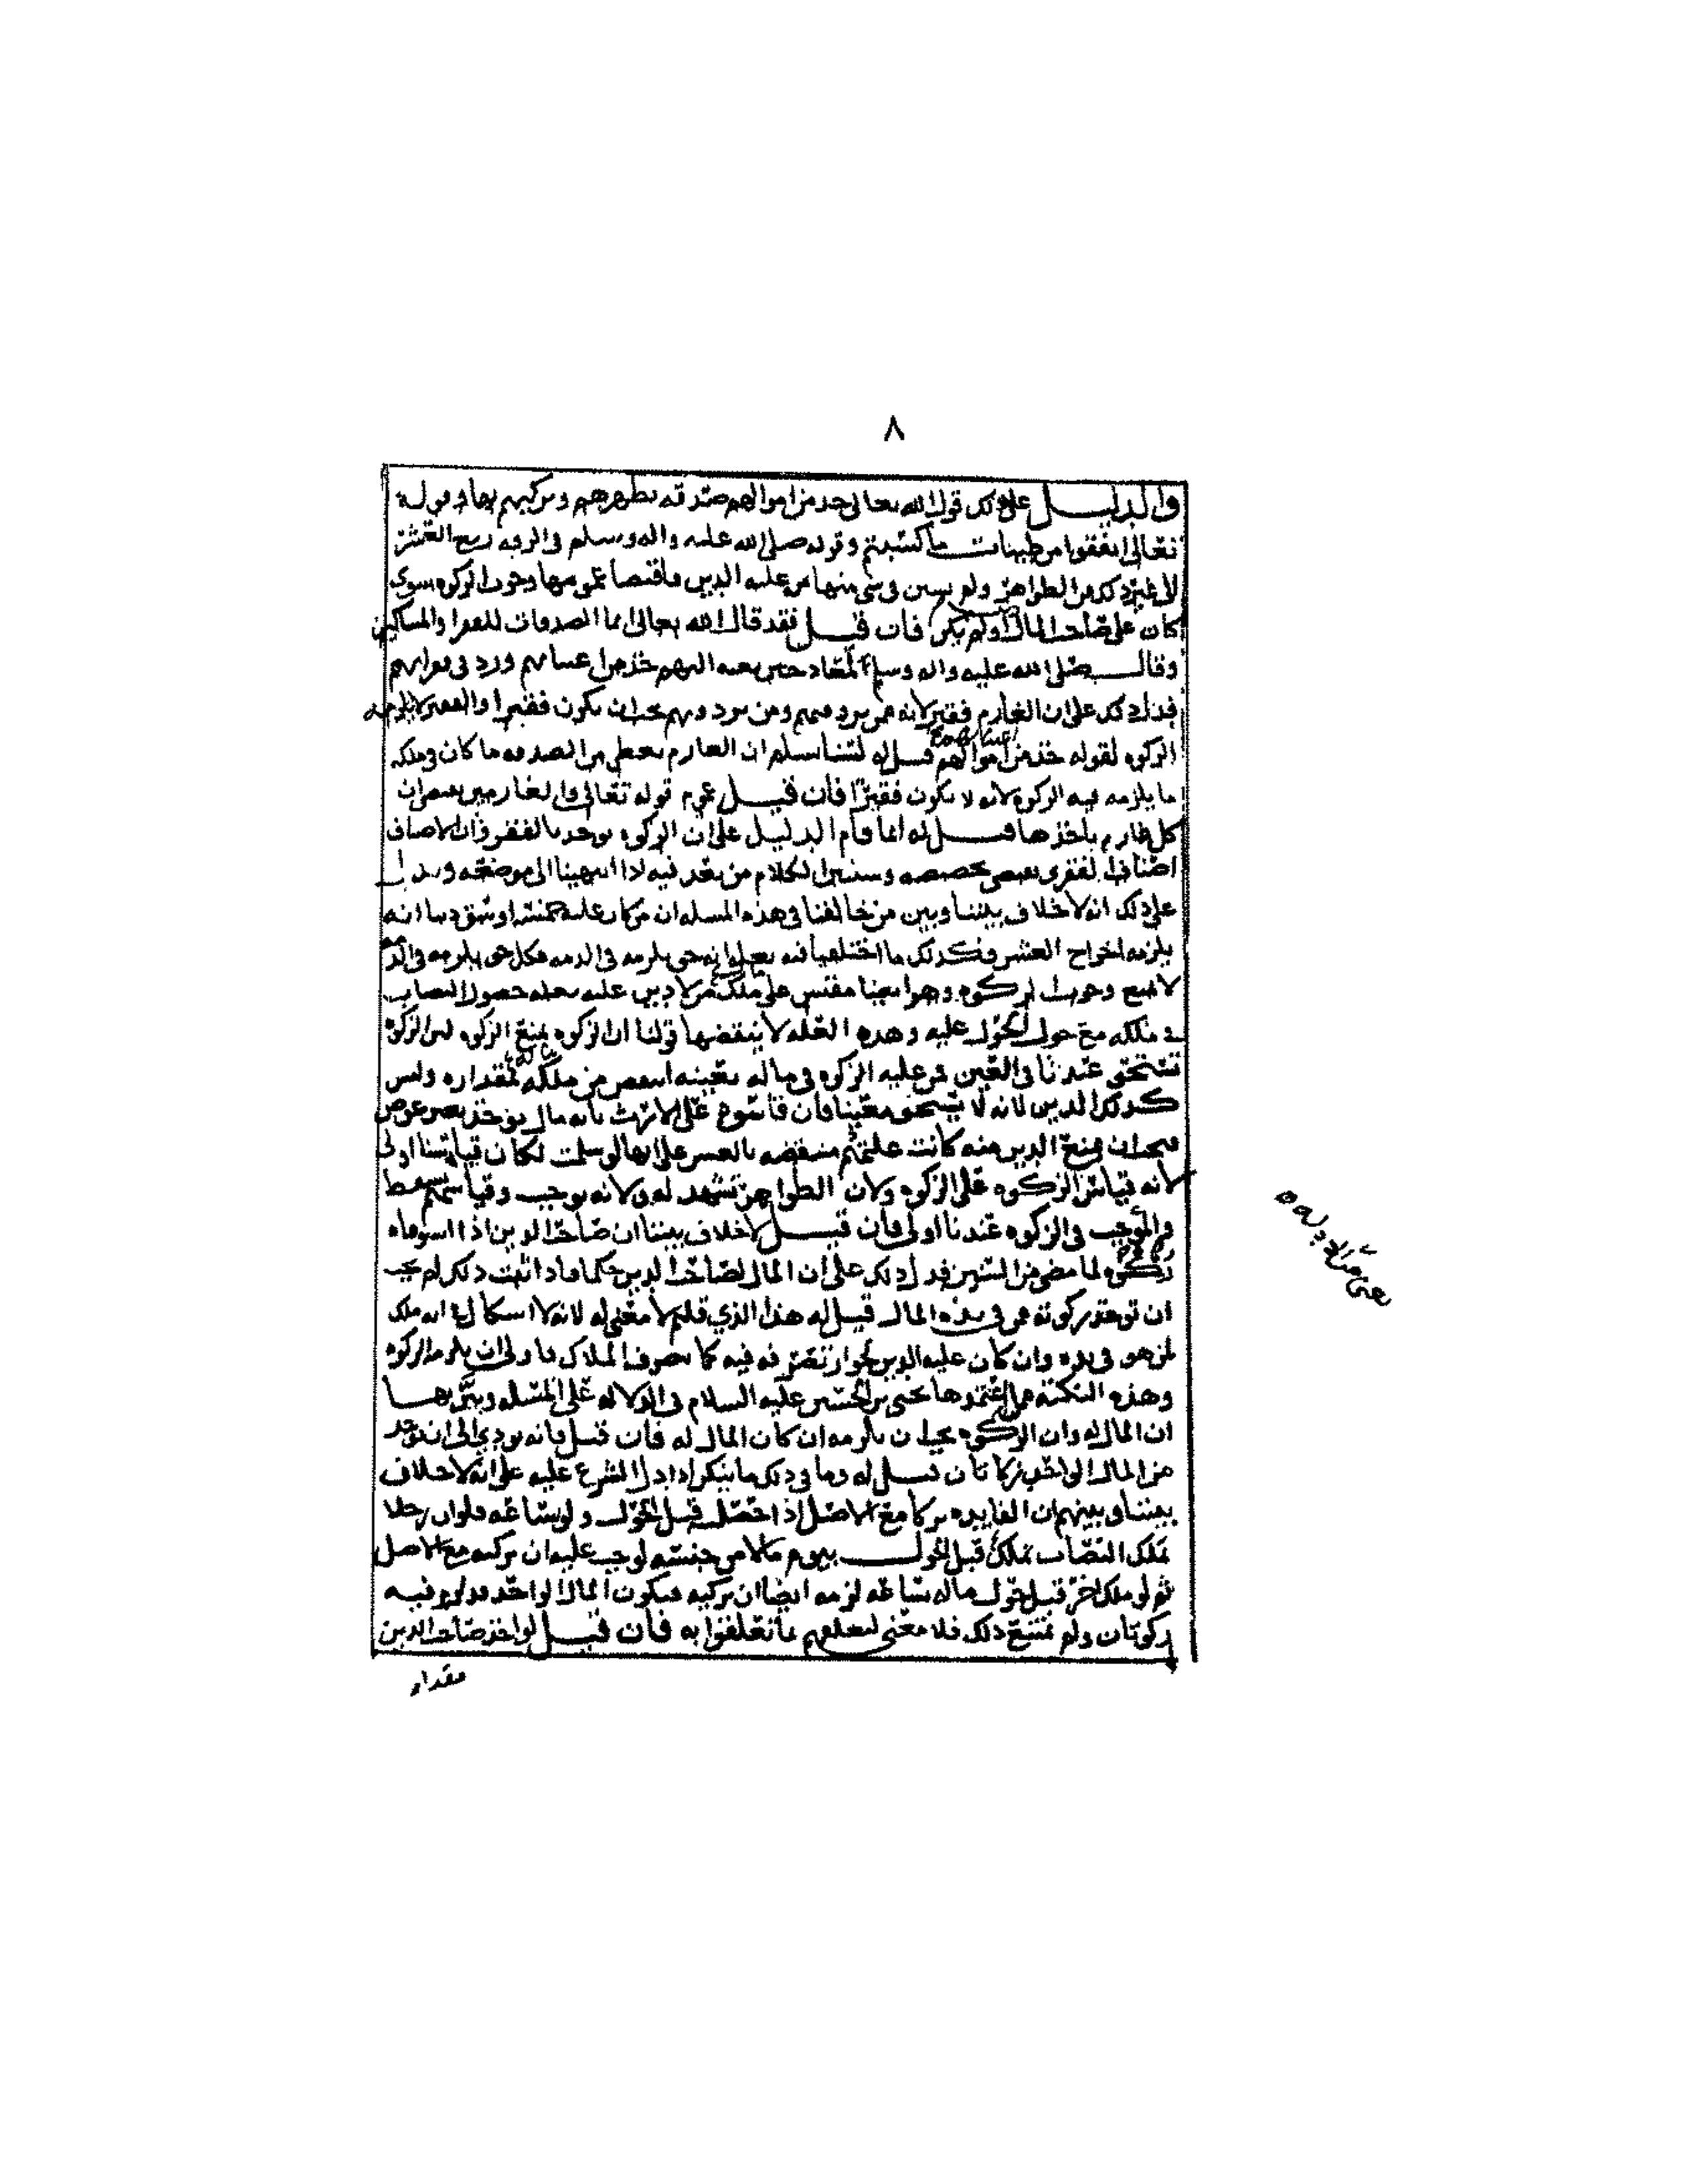 ٨
والدليل على ذلك قول الله تعالى خذ من اموالهم صدقة تطهرهم وتزكيهم بها وقوله
تعالى انفقوا من طيبات ما كسبتم وقوله صلى الله عليه واله وسلم في الرقة ربع العشر
الى غير ذلك من الظواهر ولم يستثن في شي منها من عليه الدين فاقتضا عمومها وجوب الزكوة سوى
كان على صاحب المال او لم يكن فان قيل فقد قال الله تعالى انما الصدقات للفقرا والمساكين
وقال صلى الله عليه واله وسلم لمعاذ حين بعثه اليهم خذ من اغنيائهم ورد في فقرائهم
فدل ذلك على ان الغارم فقير لانه ممن يرد فيهم ومن يرد فيهم يجب ان يكون فقيرا والفقير لا يلزمه
الزكوة لقوله خذ من اموالهم اغنيائهم قيل له لسنا نسلم ان الغارم يعطى من الصدقة ما كان في ملكه
ما يلزمه فيه الزكوة لانه لا يكون فقيرًا فان قيل عموم قوله تعالى والغارمين يقتضي ان
كل غارم ياخذها قيل له انما قام الدليل على ان الزكوة توخذ بالفقر وان الاصناف
اصناف الفقرى تخصصه وسنبين الكلام من بعد فيه اذا انتهينا الى موضعه ويدل
على ذلك انه لا خلاف بيننا وبين من خالفنا في هذه المسله ان من كان عليه خمسة اوسق دينا انه
يلزمه اخراج العشر وكذلك ما اختلفنا فيه بعلة انه حق يلزمه في الذمة فكل حق يلزمه في الذمة
لا يمنع وجوب الزكوة وهو ايضا مقيس على ملك من لا دين عليه بعلة حصول النصاب
في ملكه مع حول الحول عليه وهذه العلة لا ينقضها قولنا ان الزكوة تمنع الزكوة لان الزكوة
تستحق عندنا في العين فمن عليه الزكوة في ماله بعينه انتقص من ملكه بمقداره وليس
كذلك الدين لانه لا يستحق معينا فان قاسوه على الارث بانه مال يوخذ بغير عوض
فيجب ان يمنع الدين منه كانت علتهم منتقضه بالعشر على انها لو سلمت لكان قياسنا اولى
لانه قياس الزكوة على الزكوة ولان الظواهر تشهد له ولانه يوجب وقياسهم يسقط
والموجب في الزكوة عندنا اولى فان قيل لا خلاف بيننا ان صاحب الدين اذا استوفاه
زكوه لما مضى من السنين فدل ذلك على ان المال لصاحب الدين حكما فاذا ثبت ذلك لم يجب
ان توخذ زكوته ممن في يده المال قيل له هذا الذي قلتم لا معنى له لانه لا اشكال في انه ملك
لمن هو في يده وان كان عليه الدين لجواز تصرفه فيه كما يتصرف الملاك فاولى ان يلزمه الزكوة
وهذه النكتة مما اعتمدها يحيى بن الحسين عليه السلام في الدلالة على المسله وبين بها
ان المال له وان الزكوة يجب ان يلزمه ان كان المال له فان قيل فانه يودي الى ان توخذ
من المال الواحد زكاتان قيل له وما في ذلك ما ينكر اذا دل الشرع عليه على انه لا خلاف
بيننا وبينهم ان الفايدة تزكا مع الاصل اذا حصل قبل الحول ولو بساعه فلو ان رجلا
تملك النصاب تملك قبل الحول بيوم مالا من جنسه لوجب عليه ان يزكيه مع الاصل
ثم لو ملك اخر قبل حول ماله بساعه لزمه ايضا ان يزكيه فيكون المال الواحد قد لزم فيه
زكوتان ولم يمتنع ذلك فلا معنى لتعلقهم بما تعلقوا به فان قيل لو اخذ صاحب الدين
مقدار